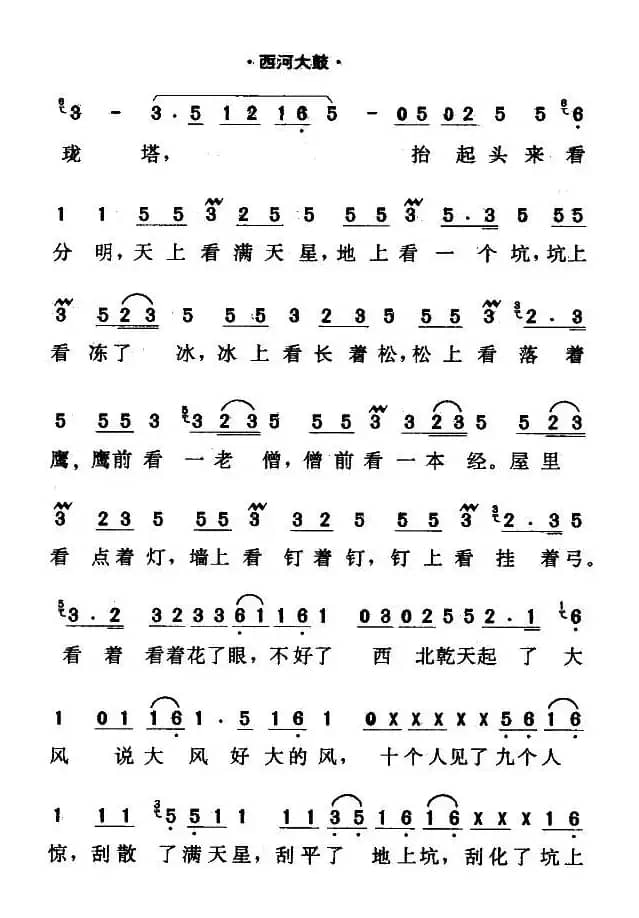 ·西河大鼓·
3 - 3.5 1216 5 - 05025 5 6
珑塔，抬起头来看
1 1 55 3 2 5 5 55 3 5.3 5 55
分明，天上看满天星，地上看一个坑，坑上
3 523 5 5 55 3 235 55 3 2.3
看冻了冰，冰上看长着松，松上看落着
5 553 3 235 55 3 3 235 5 23
鹰，鹰前看一老僧，僧前看一本经。屋里
3 235 55 3 325 55 3 2.35
看点着灯，墙上看钉着钉，钉上看挂着弓。
3.2 32336116 1 0302552.1 6
看着看着花了眼，不好了西北乾天起了大
1 01 16 1.5 16 1 0XXXXX56 16
风说大风好大的风，十个人见了九个人
1 11 5511 1 11356 16XXX16
惊，刮散了满天星，刮平了地上坑，刮化了坑上